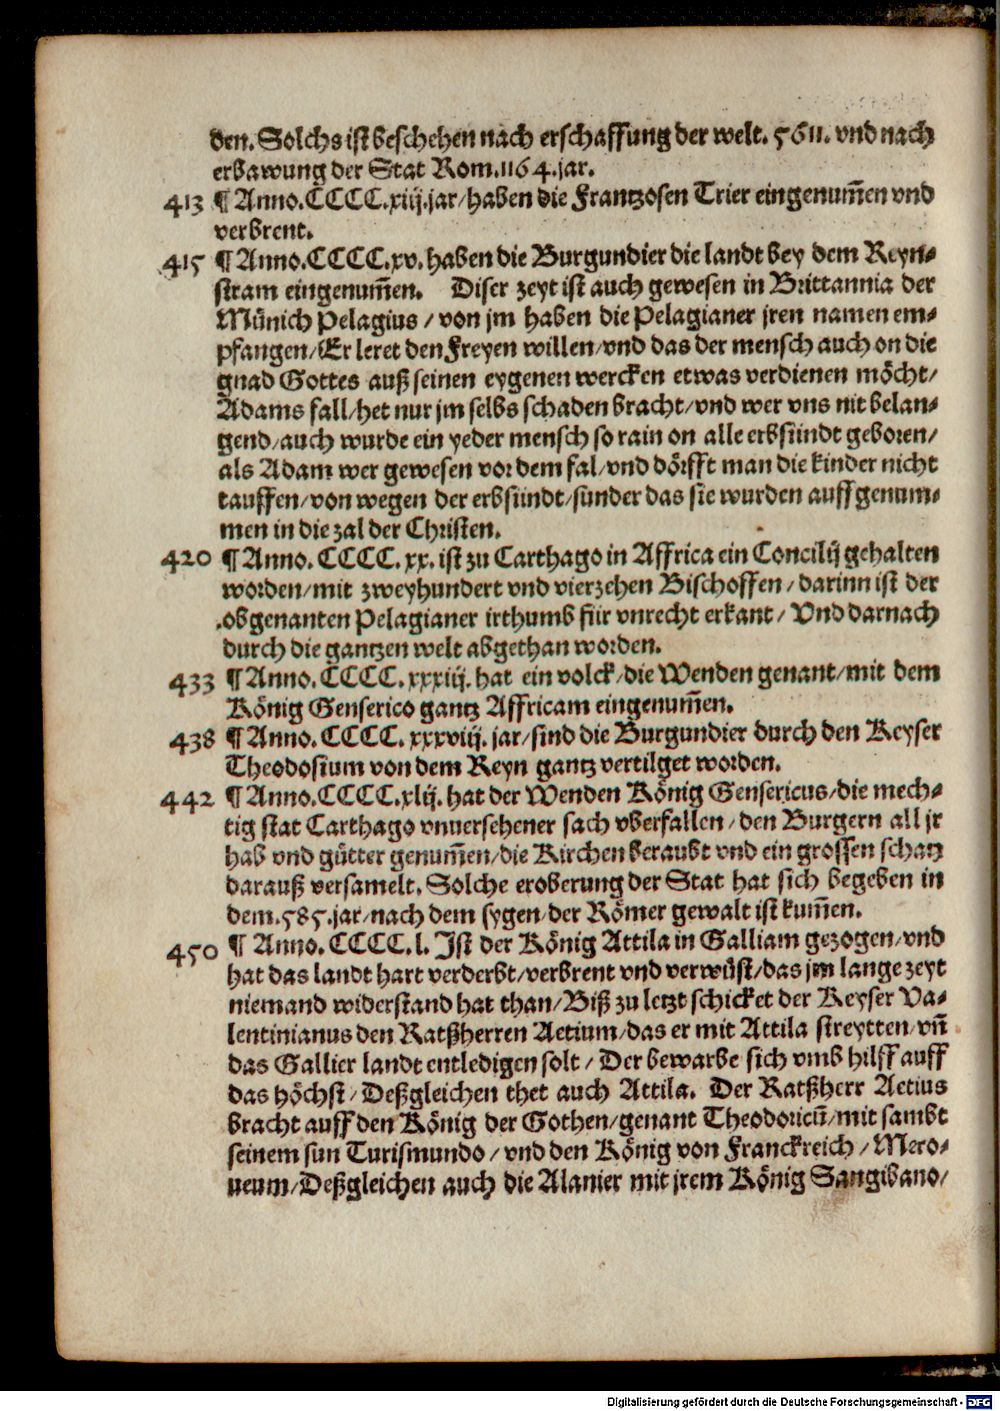 den. Solchs ist beschehen nach erschaffung der welt. 5611. vnd nach
erbawung der Stat Rom. 1164. jar.
413 ¶ Anno. CCCC. xiij. jar/ haben die Frantzosen Trier eingenum̄en vnd
verbrent.
415 ¶ Anno. CCCC. xv. haben die Burgundier die landt bey dem Reyn⸗
stram eingenum̄en. Diser zeyt ist auch gewesen in Brittannia der
Münich Pelagius / von jm haben die Pelagianer jren namen em⸗
pfangen/ Er leret den Freyen willen/ vnd das der mensch auch on die
gnad Gottes auß seinen eygenen wercken etwas verdienen möcht/
Adams fall/ het nur jm selbs schaden bracht/ vnd wer vns nit belan⸗
gend/ auch wurde ein yeder mensch so rain on alle erbsündt geboren/
als Adam wer gewesen vor dem fal/ vnd dörfft man die kinder nicht
tauffen/ von wegen der erbsündt/ sunder das sie wurden auffgenum⸗
men in die zal der Christen.
420 ¶ Anno. CCCC. xx. ist zu Carthago in Affrica ein Concilij gehalten
worden/ mit zweyhundert vnd vierzehen Bischoffen / darinn ist der
obgenanten Pelagianer irthumb für vnrecht erkant/ Vnd darnach
durch die gantzen welt abgethan worden.
433 ¶ Anno. CCCC. xxxiij. hat ein volck/ die Wenden genant/ mit dem
König Genserico gantz Affricam eingenum̄en.
438 ¶ Anno. CCCC. xxxviij. jar/ sind die Burgundier durch den Keyser
Theodosium von dem Reyn gantz vertilget worden.
442 ¶ Anno. CCCC. xlij. hat der Wenden König Gensericus/ die mech⸗
tig stat Carthago vnuersehener sach vberfallen / den Burgern all jr
hab vnd gütter genum̄en/ die Kirchen beraubt vnd ein grossen schatz
darauß versamelt. Solche eroberung der Stat hat sich begeben in
dem. 585. jar/ nach dem sygen/ der Römer gewalt ist kum̄en.
450 ¶ Anno. CCCC. l. Ist der König Attila in Galliam gezogen/ vnd
hat das landt hart verderbt/ verbrent vnd verwüst/ das jm lange zeyt
niemand widerstand hat than/ Biß zu letzt schicket der Keyser Va⸗
lentinianus den Ratßherren Aetium/ das er mit Attila streytten/ vn̄
das Gallier landt entledigen solt / Der bewarbe sich vmb hilff auff
das höchst / Deßgleichen thet auch Attila. Der Ratßherr Aetius
bracht auff den König der Gothen/ genant Theodoricū/ mit sambt
seinem sun Turismundo / vnd den König von Franckreich / Mero⸗
ueum/ Deßgleichen auch die Alanier mit jrem König Sangibano/
Digitalisierung gefördert durch die Deutsche Forschungsgemeinschaft - DFG